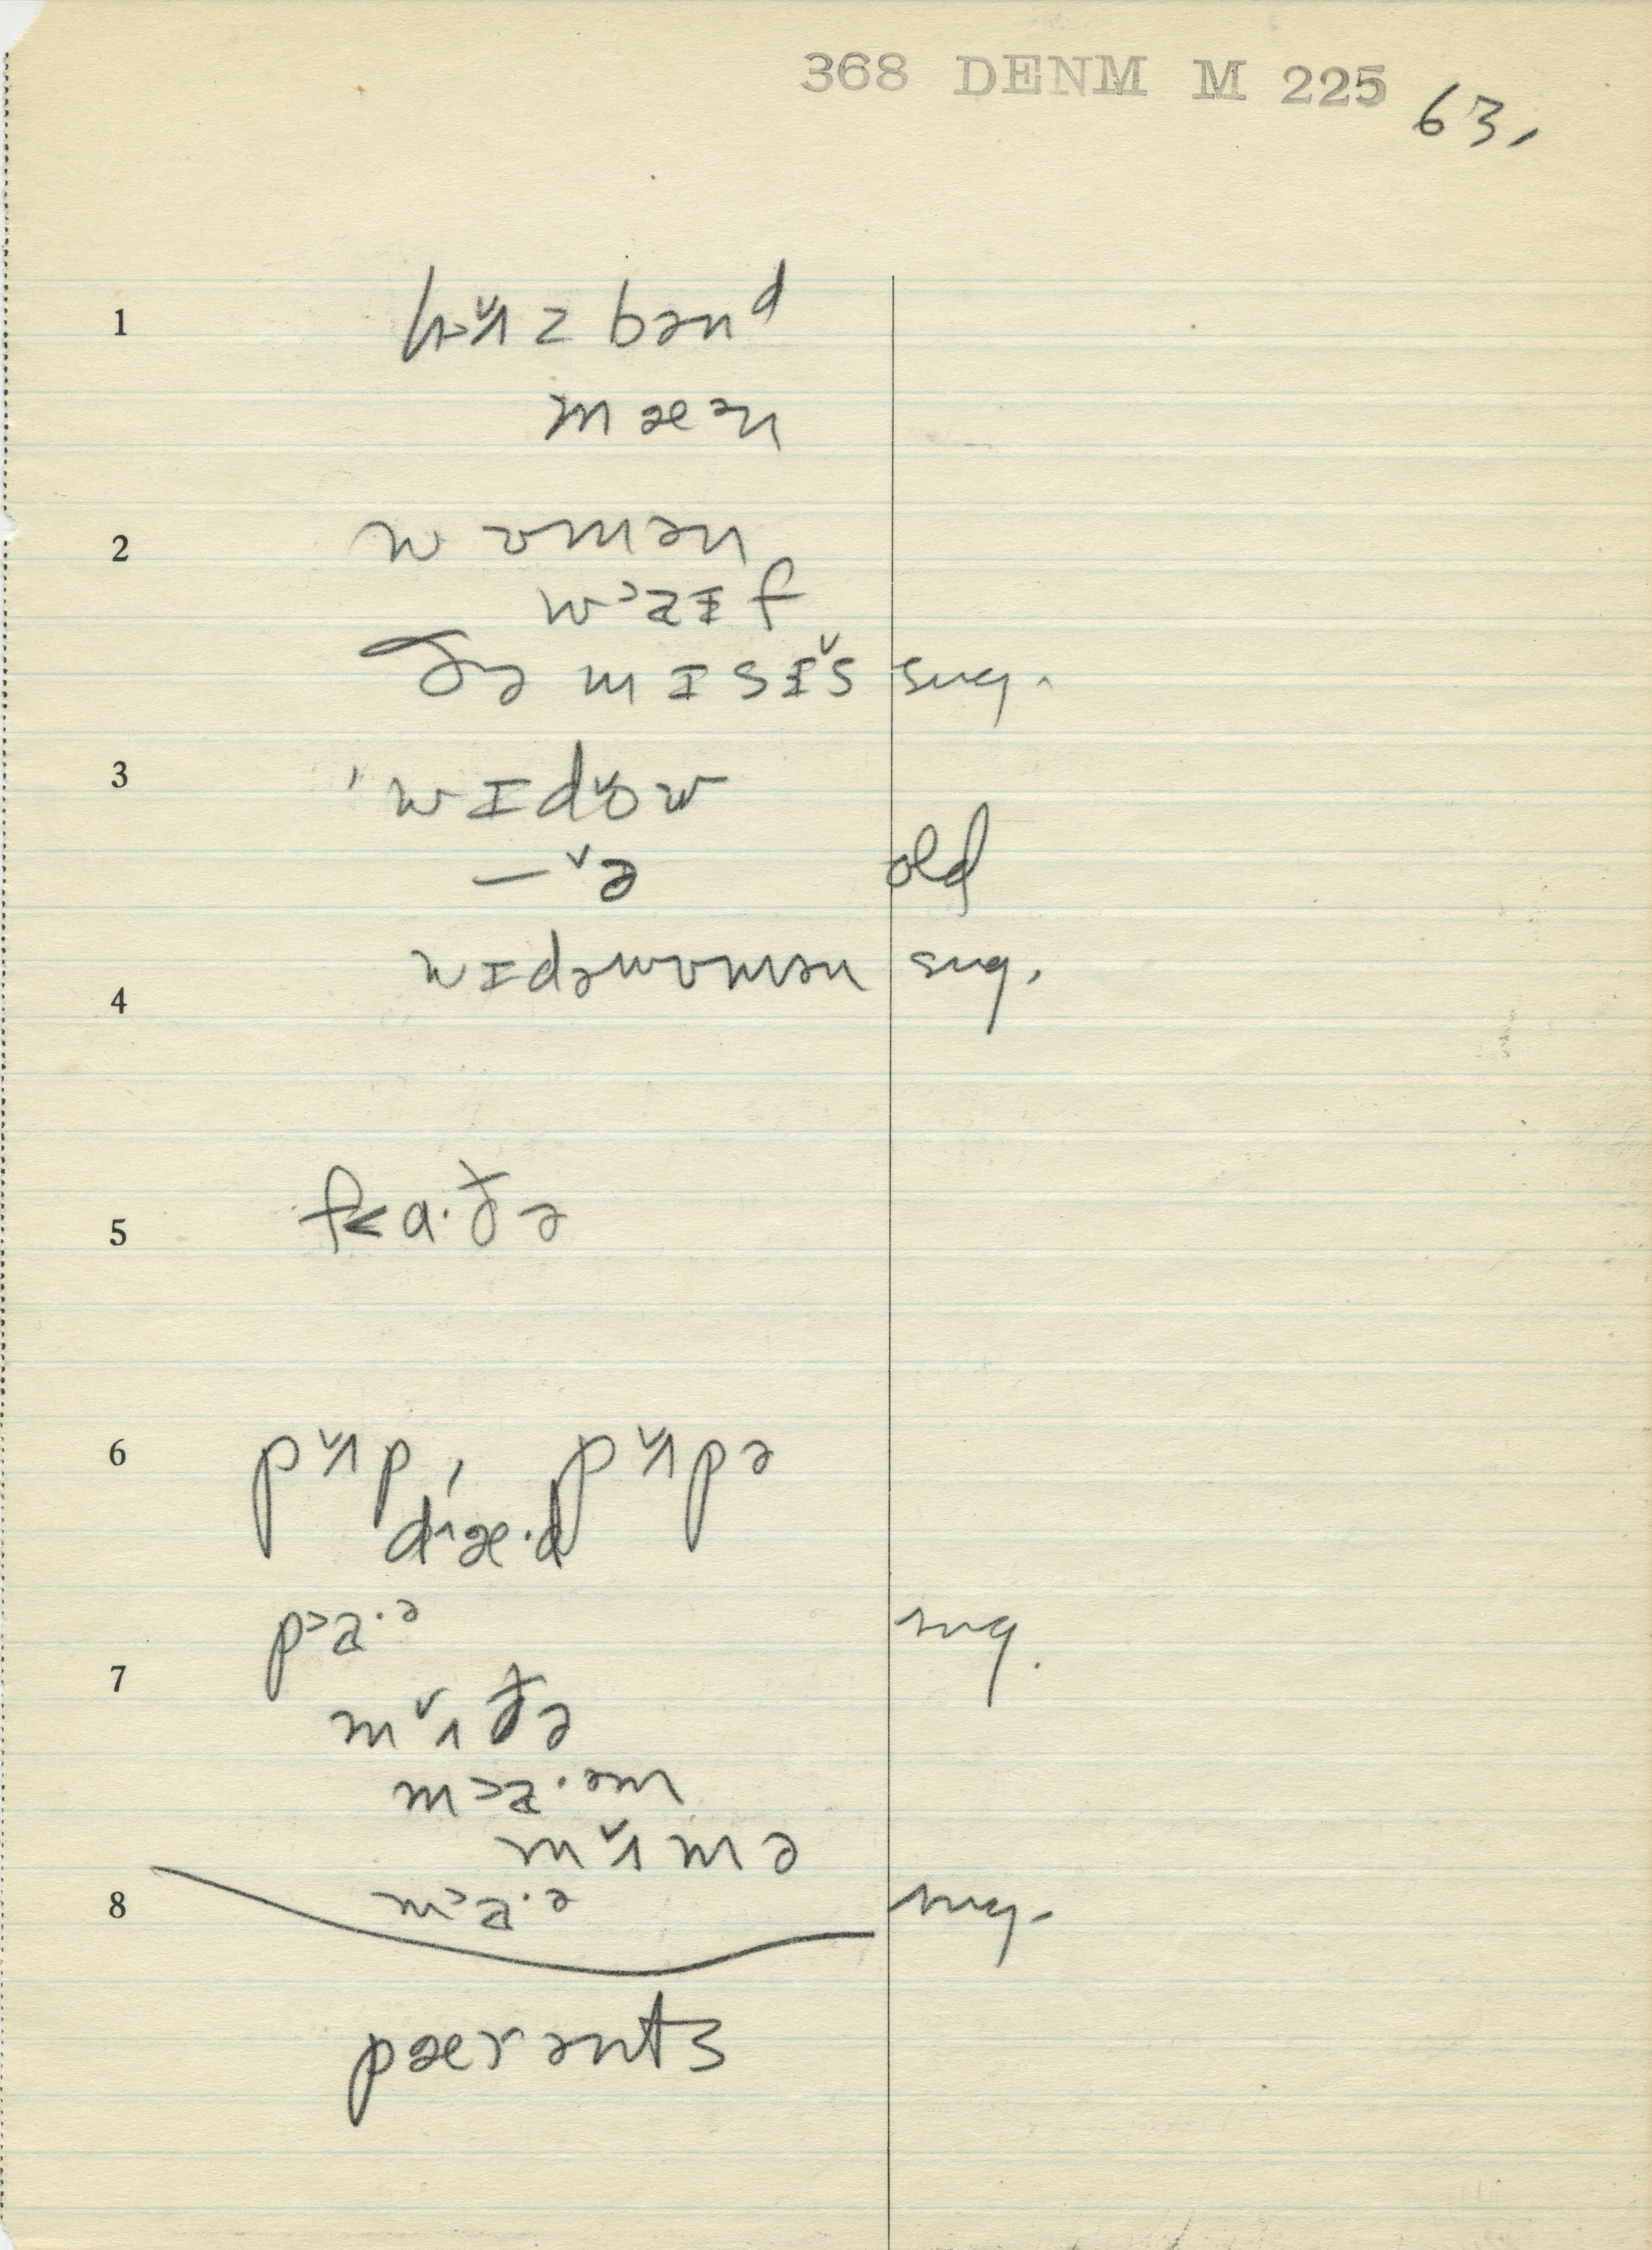 368 DENM M 225 63.
1 h>ˇʌzbənᵈ
mæᵊn
2 wʊmən
w>aɪf
ðə mɪsɪˇs sug.
3 'wɪdˇow
—ˇə old
wɪdəwʊmən sug.
4
5 f<ɑ·ðə
6 pˇʌp, pˇʌpə
d^æ·d
p>a·ᵊ sug.
7
mˇʌðə
m>a·ᵊm
mˇʌmə
8 m>a·ᵊ sug.
pærənts